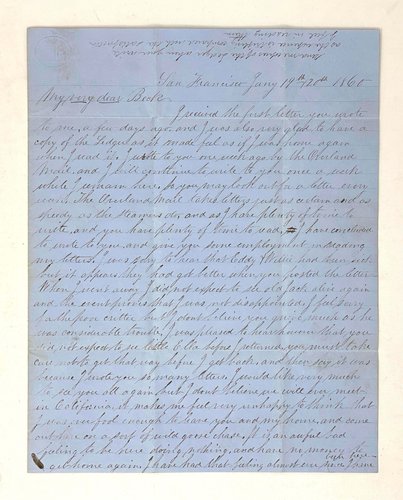 Send me some of the Ledger when you write
as the expense is trifling compared with the satisfaction
I feel in reading them
San Francisco Jany 19th/20th 1860
My very dear
I received the first letter you wrote
to me, a few days ago, and I was also very glad to have a
copy of the Ledger as it made feel as if I was home again
when I read it. I wrote to you one week ago by the Overland
Mail, and I will continue to write to you once a week
while I remain here. So you may look out for a letter every
week. The Overland Mail takes letters just as certain and as
speedy as the Steamers do, and as I have plenty of time to
write, and you have plenty of time to read, I have concluded
to write to you and give you some employment in reading
my letters. I was sorry to hear that Eddy & Willie had been sick
but it appears they had got better when you posted the letter
When I went away I did not expect to see old Jack alive again
and the event proves that I was not disappointed, I feel sorry
for the poor critter but I don't believe you grieve much as he
was considerable trouble. I was pleased to hear however that you
did not expect to set to the before I returned, you must take
care not to get that way before I get back, and then say it was
because I wrote you so many letters. I would like very much
to see you all again but I don't believe we will ever meet
in California. it makes me feel very unhappy to think that
I was ever fool enough to leave you and my home, and come
out here on a sort of wild goose chase. It is an awful bad
feeling to be here doing nothing, and have no money to
get home again, I have had that feeling almost ever since I came